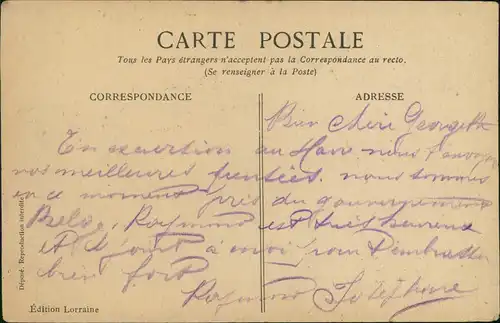 CARTE POSTALE
Tous les Pays étrangers n'acceptent pas la Correspondance au recto.
(Se renseigner à la Poste)
CORRESPONDANCE
ADRESSE
Bien chère Georgette
En excurtion au Havre nous t'envoyons
nos meilleures pensées. nous sommes
en ce moment près du gouvernement
Belge, Raymond est très heureux
et se joint à moi pour t'embrasser
bien fort
Raymond Joséphine
Édition Lorraine
Déposé. Reproduction interdite